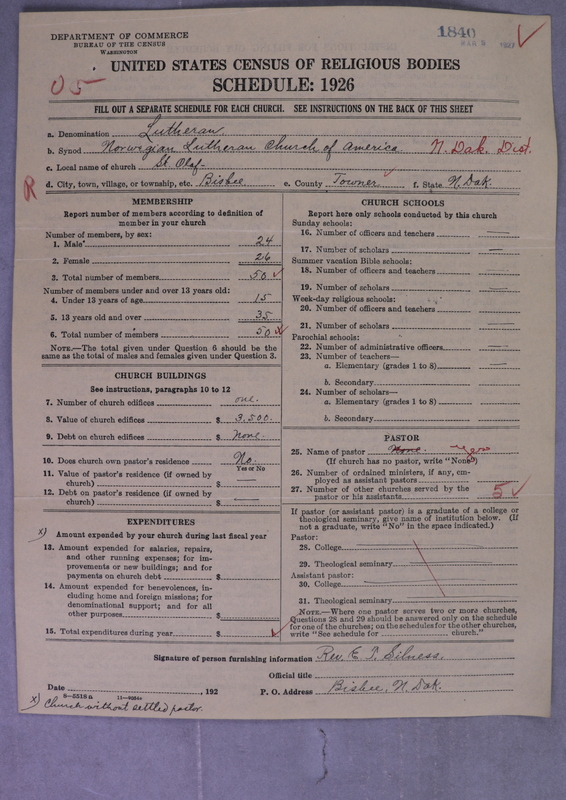 DEPARTMENT OF COMMERCE
BUREAU OF THE CENSUS
WASHINGTON
1840
1927
05
UNITED STATES CENSUS OF RELIGIOUS BODIES
SCHEDULE: 1926
FILL OUT A SEPARATE SCHEDULE FOR EACH CHURCH. SEE INSTRUCTIONS ON THE BACK OF THIS SHEET
a. Denomination Lutheran
b. Synod Norwegian Lutheran Church of America N. Dak. Dist.
c. Local name of church St Olaf
R
d. City, town, village, or township, etc. Bisbee e. County Towner f. State N. Dak.
MEMBERSHIP
Report number of members according to definition of
member in your church
Number of members, by sex:
1. Male 24
2. Female 26
3. Total number of members 50
Number of members under and over 13 years old:
4. Under 13 years of age 15
5. 13 years old and over 35
6. Total number of members 50
NOTE.—The total given under Question 6 should be the
same as the total of males and females given under Question 3.
CHURCH BUILDINGS
See instructions, paragraphs 10 to 12
7. Number of church edifices one.
8. Value of church edifices $ 3,500.
9. Debt on church edifices $ None.
10. Does church own pastor's residence No.
Yes or No
11. Value of pastor's residence (if owned by
church) $
12. Debt on pastor's residence (if owned by
church) $
EXPENDITURES
x) Amount expended by your church during last fiscal year
13. Amount expended for salaries, repairs,
and other running expenses; for im-
provements or new buildings; and for
payments on church debt $
14. Amount expended for benevolences, in-
cluding home and foreign missions; for
denominational support; and for all
other purposes $
15. Total expenditures during year $
CHURCH SCHOOLS
Report here only schools conducted by this church
Sunday schools:
16. Number of officers and teachers
17. Number of scholars
Summer vacation Bible schools:
18. Number of officers and teachers
19. Number of scholars
Week-day religious schools:
20. Number of officers and teachers
21. Number of scholars
Parochial schools:
22. Number of administrative officers
23. Number of teachers—
a. Elementary (grades 1 to 8)
b. Secondary
24. Number of scholars—
a. Elementary (grades 1 to 8)
b. Secondary
PASTOR
25. Name of pastor None.
(If church has no pastor, write "None")
26. Number of ordained ministers, if any, em-
ployed as assistant pastors
27. Number of other churches served by the
pastor or his assistants 5
If pastor (or assistant pastor) is a graduate of a college or
theological seminary, give name of institution below. (If
not a graduate, write "No" in the space indicated.)
Pastor:
28. College
29. Theological seminary
Assistant pastor:
30. College
31. Theological seminary
NOTE.—Where one pastor serves two or more churches,
Questions 28 and 29 should be answered only on the schedule
for one of the churches; on the schedules for the other churches,
write "See schedule for church."
Signature of person furnishing information Rev. E. T. Silness.
Official title
Date , 192 P. O. Address Bisbee, N. Dak.
x) Church without settled pastor.